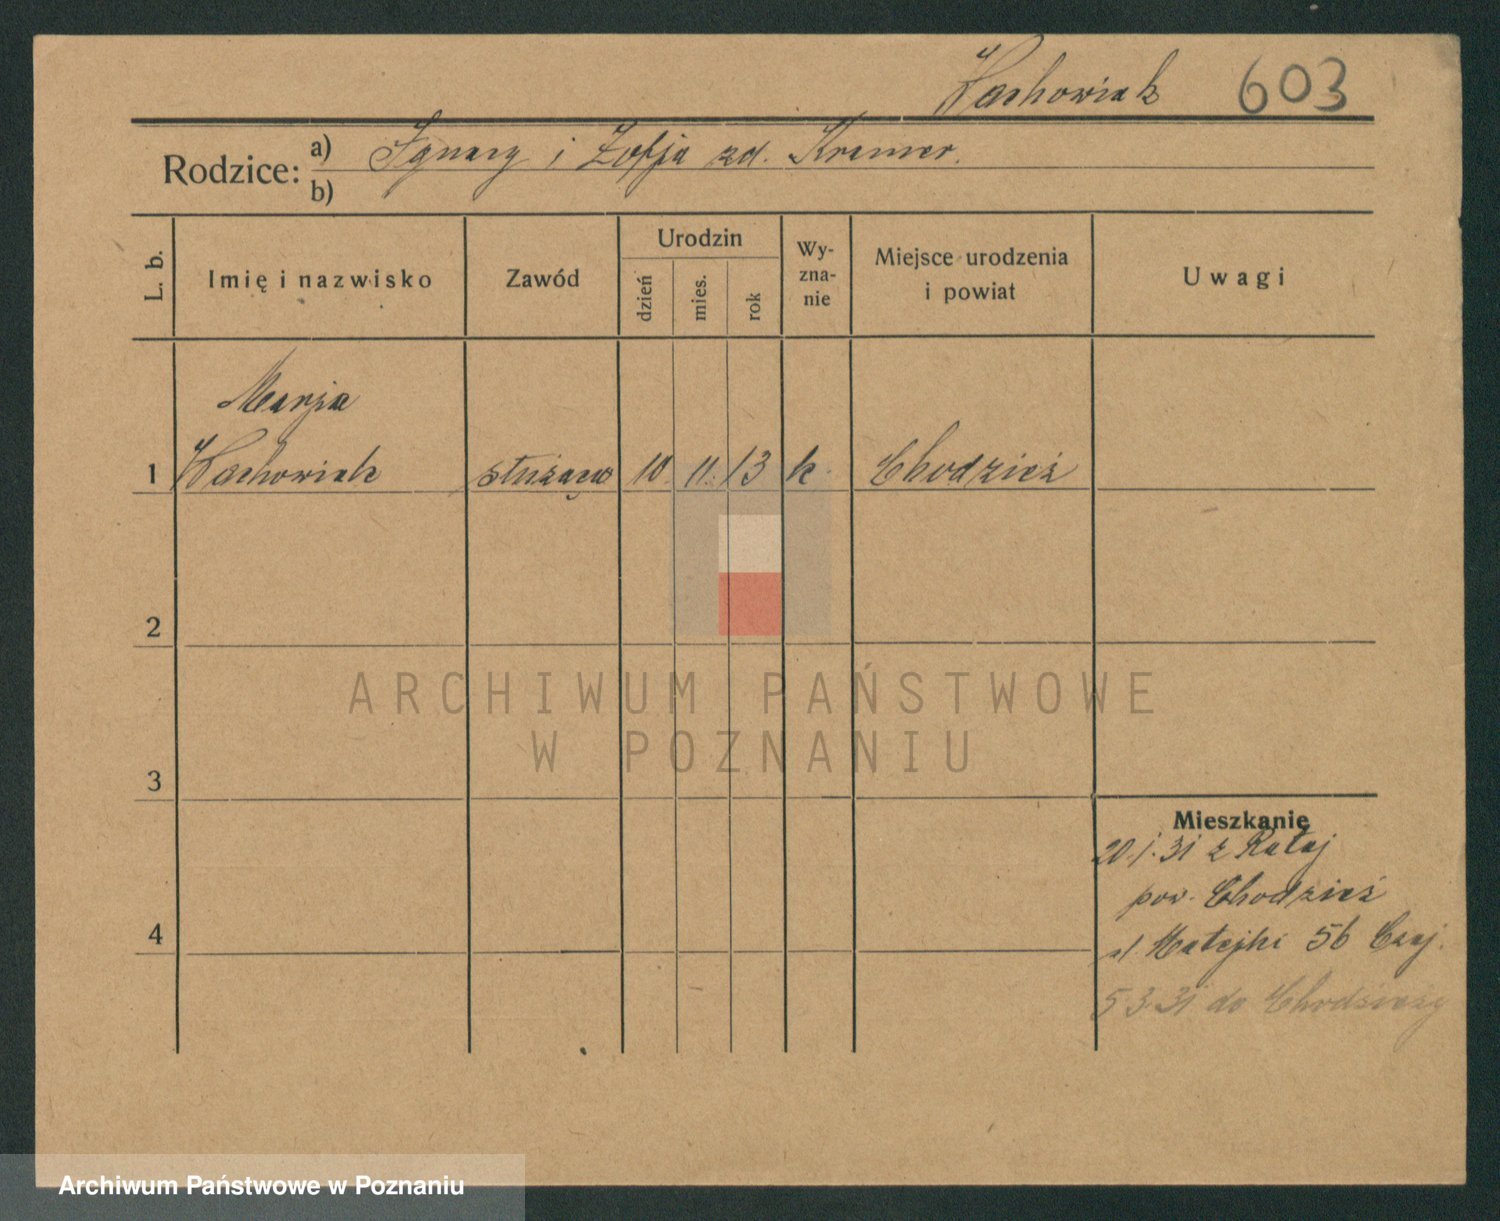 Wachowiak 603
Rodzice: a) Ignacy i Zofja zd. Kramer.
b)
L. b.
Imię i nazwisko
Zawód
Urodzin
dzień
mies.
rok
Wy-
zna-
nie
Miejsce urodzenia
i powiat
Uwagi
Marja
1 Wachowiak służąca 10. 11. 13 k. Chodzież
2
3
4
Mieszkanie
20.1.31 z Rataj
pow. Chodzież
ul. Matejki 56 Czaj.
5 3.31 do Chodzieży
ARCHIWUM PAŃSTWOWE
W POZNANIU
Archiwum Państwowe w Poznaniu